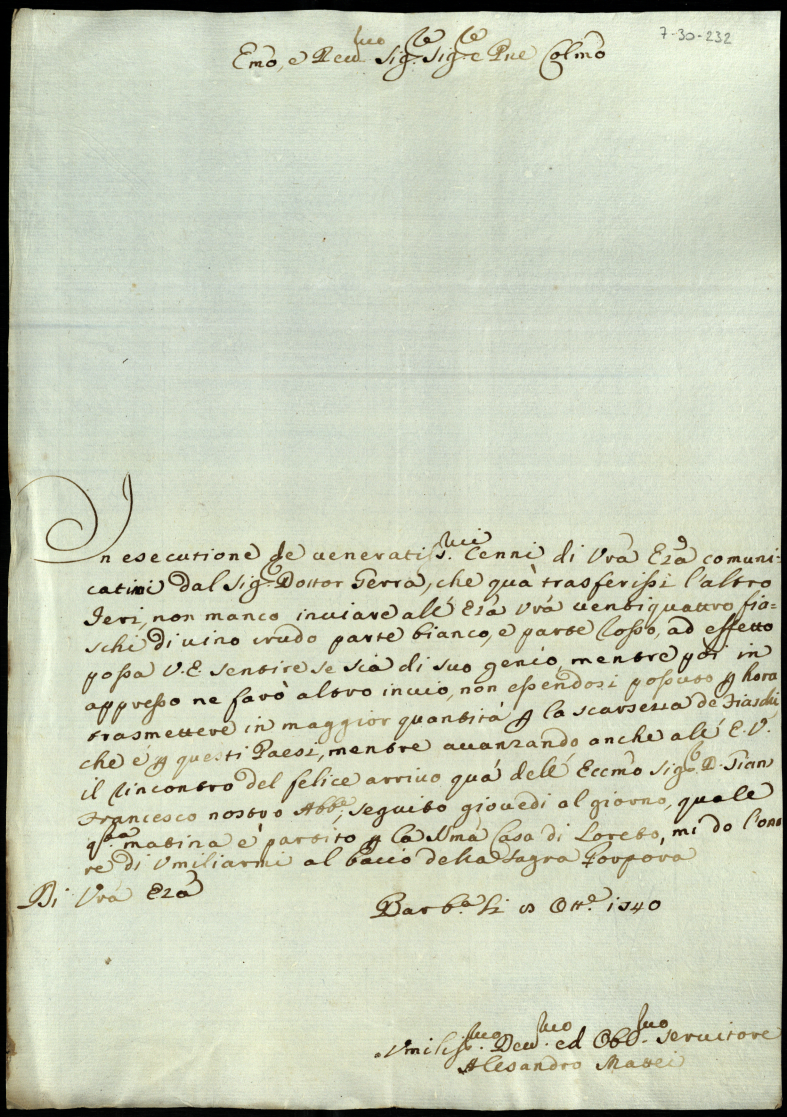 7-30-232
Emo, e Reu.mo Sig.re Sig.re e Pne Colmo
In esecutione de ueneratiss.mi Cenni di Vra Eza comuni-
catimi dal Sig.e Dottor Terra, che quà trasferissi l'altro
Ieri, non manco inuiare all'Eza Vra uentiquattro fia=
schi di uino crudo parte bianco, e parte Rosso, ad effetto
possa V.E. sentire se sia di suo genio, mentre poi in
appresso ne farò altro inuio, non essendosi possuto p hora
trasmettere in maggior quantità p la scarsezza de Fiaschi
che è p questi Paesi, mentre auanzando anche all'E.V.
il rincontro del felice arriuo quà dell'Eccmo Sig.e D. Gian
Francesco nostro Abb.e, seguito giouedi al giorno, quale
q.ta matina è partito p la Sma Casa di Loreto, mi do l'ono
re di Vmiliarmi al bacio della Sagra Porpora
Di Vra Eza
Barb.a li 8 Ott.e 1740
Vmiliss.mo Deu.mo ed Obb.mo seruitore
Alesandro Mattei